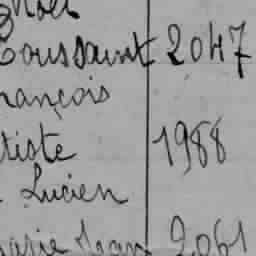 Toussaint 2047
rançois
tiste 1988
Lucien
Jean 2061